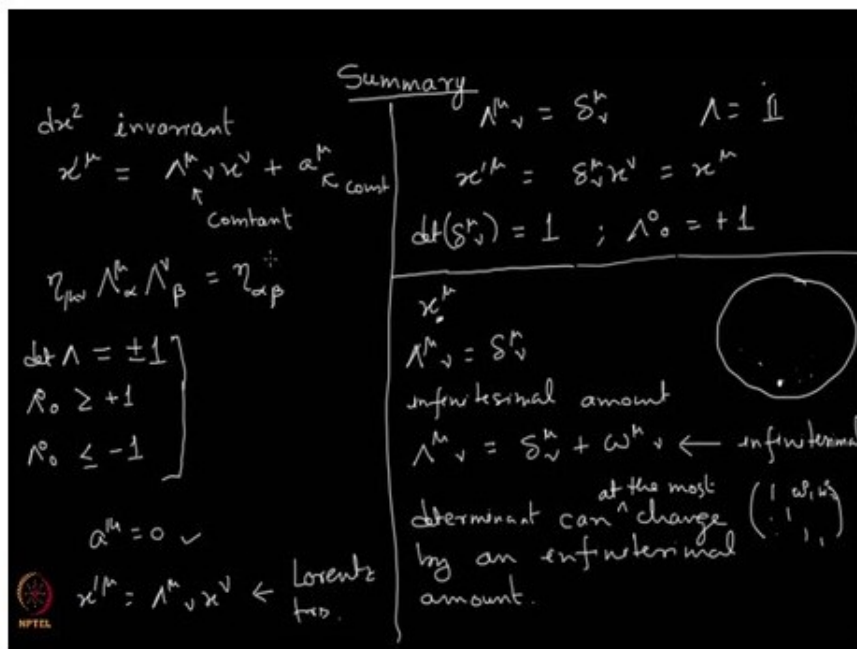 Summary
dx² invariant
x'^μ = Λ^μ_ν x^ν + a^μ
↖ const
↖ constant
η_μν Λ^μ_α Λ^ν_β = η_αβ
det Λ = ±1
Λ⁰₀ ≥ +1
Λ⁰₀ ≤ -1
a^μ = 0 ✓
x'^μ = Λ^μ_ν x^ν ← Lorentz
trs.
NPTEL
Λ^μ_ν = δ^μ_ν Λ = 𝟙
x'^μ = δ^μ_ν x^ν = x^μ
det(δ^μ_ν) = 1 ; Λ⁰₀ = +1
x^μ
Λ^μ_ν = δ^μ_ν
infinitesimal amount
Λ^μ_ν = δ^μ_ν + ω^μ_ν ← infinitesimal
at the most
determinant can ^ change
by an infinitesimal
amount.